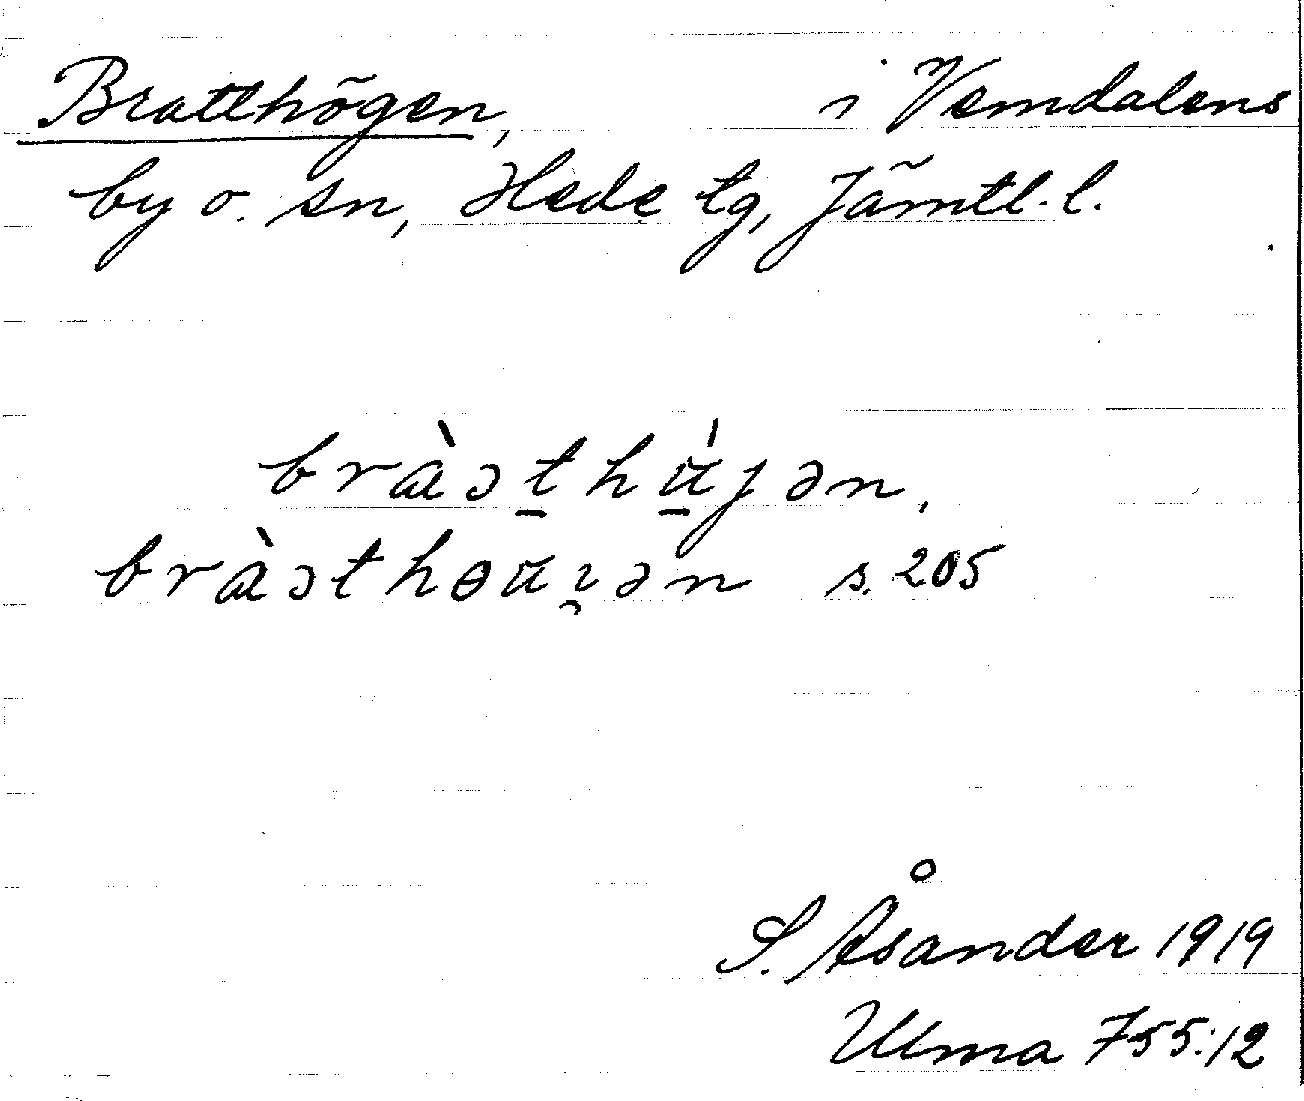 Bratthögen, i Vemdalens
by o. sn, Hede tg, Jämtl. l.
bràɔṯhα̱̈́ȷən,
bràɔthɵα̈ı̯ən s. 205
S. Åsander 1919
Ulma 755:12